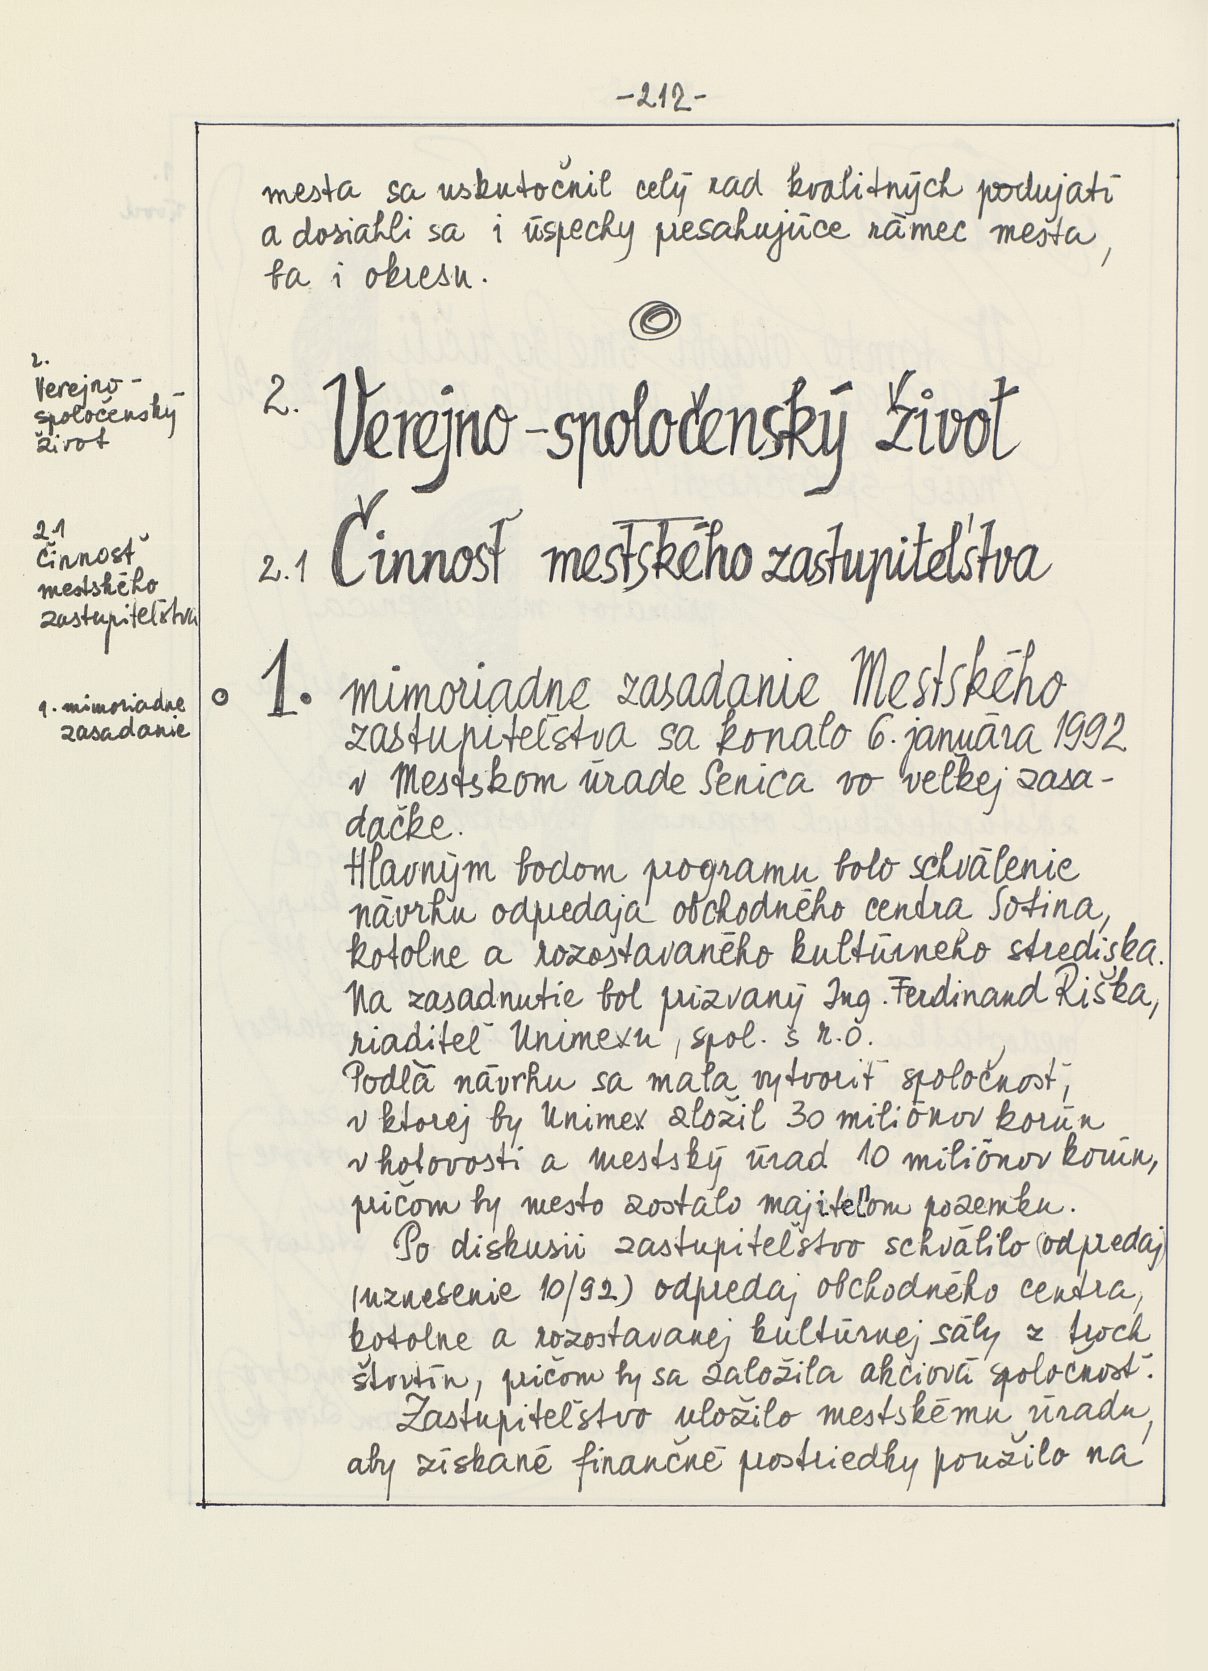 -212-
mesta sa uskutočnil celý rad kvalitných podujatí
a dosiahli sa i úspechy presahujúce rámec mesta,
ba i okresu.
2.
Verejno-
spoločenský
život
2. Verejno-spoločenský život
2.1
Činnosť
mestského
zastupiteľstva
2.1 Činnosť mestského zastupiteľstva
1. mimoriadne
zasadanie
1. mimoriadne zasadanie Mestského
zastupiteľstva sa konalo 6. januára 1992
v Mestskom úrade Senica vo veľkej zasa-
dačke.
Hlavným bodom programu bolo schválenie
návrhu odpredaja obchodného centra Sotina,
kotolne a rozostavaného kultúrneho strediska.
Na zasadnutie bol prizvaný Ing. Ferdinand Riška,
riaditeľ Unimexu, spol. s r.o.
Podľa návrhu sa mala vytvoriť spoločnosť,
v ktorej by Unimex zložil 30 miliónov korún
v hotovosti a mestský úrad 10 miliónov korún,
pričom by mesto zostalo majiteľom pozemku.
Po diskusii zastupiteľstvo schválilo (odpredaj)
(uznesenie 10/92) odpredaj obchodného centra,
kotolne a rozostavanej kultúrnej sály z troch
štvrtín, pričom by sa založila akciová spoločnosť.
Zastupiteľstvo uložilo mestskému úradu,
aby získané finančné prostriedky použilo na